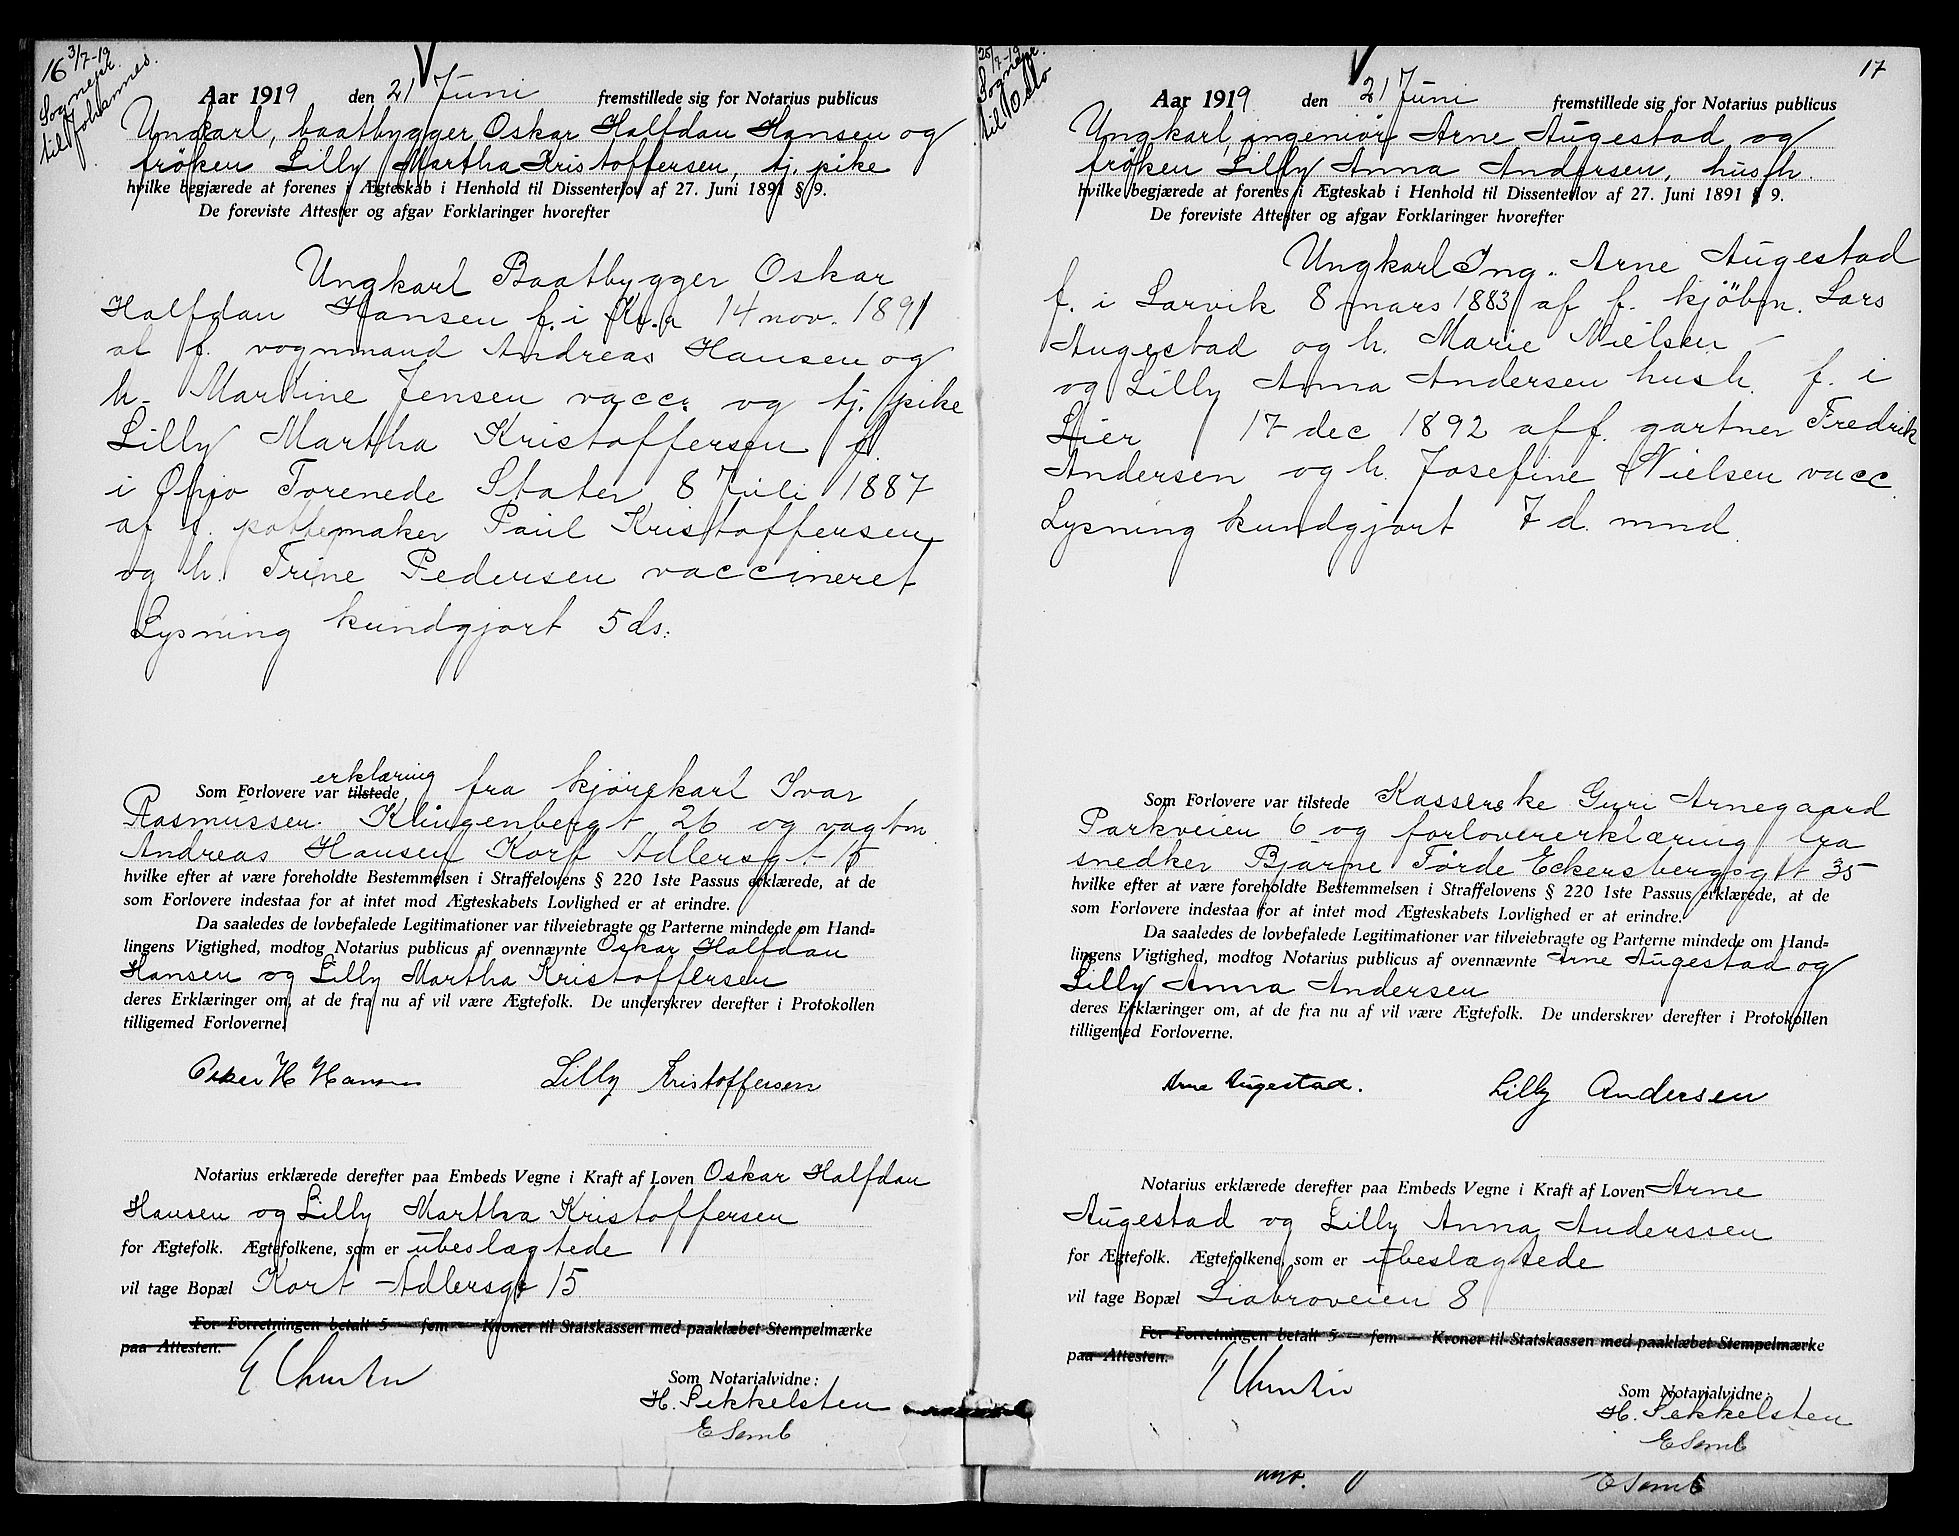 16 3/7-19
Sognepr.
til Johannes.
Aar 1919 den 21 Juni fremstillede sig for Notarius publicus
Ungkarl, baatbygger Oskar Halfdan Hansen og
frøken Lilly Martha Kristoffersen, tj. pike
hvilke begjærede at forenes i Ægteskab i Henhold til Dissenterlov af 27. Juni 1891 § 9.
De foreviste Attester og afgav Forklaringer hvorefter
Ungkarl Baatbygger Oskar
Halfdan Hansen f. i Kr.a 14 nov. 1891
af f. vognmand Andreas Hansen og
h. Martine Jensen vacc. og tj. pike
Lilly Martha Kristoffersen f.
i Ohio Forenede Stater 8 Juli 1887
af f. pottemaker Paul Kristoffersen
og h. Trine Pedersen vaccineret
Lysning kundgjort 5 ds.
erklæring
Som Forlovere var tilstede fra kjørekarl Ivar
Rasmussen Klingenbergt 26 og vagtm
Andreas Hansen Kort Adlersgt 15
hvilke efter at være foreholdte Bestemmelsen i Straffelovens § 220 1ste Passus erklærede, at de
som Forlovere indestaa for at intet mod Ægteskabets Lovlighed er at erindre.
Da saaledes de lovbefalede Legitimationer var tilveiebragte og Parterne mindede om Hand=
lingens Vigtighed, modtog Notarius publicus af ovennævnte Oskar Halfdan
Hansen og Lilly Martha Kristoffersen
deres Erklæringer om, at de fra nu af vil være Ægtefolk. De underskrev derefter i Protokollen
tilligemed Forloverne.
Oskar H Hansen Lilly Kristoffersen
Notarius erklærede derefter paa Embeds Vegne i Kraft af Loven Oskar Halfdan
Hansen og Lilly Martha Kristoffersen
for Ægtefolk. Ægtefolkene, som er ubeslægtede
vil tage Bopæl Kort Adlersgt 15
For Forretningen betalt 5 — fem — Kroner til Statskassen med paaklæbet Stempelmærke
paa Attesten.
Som Notarialvidne:
H. Sekkelsten
E Semb
25/7-19
Sognepr.
til Oslo
17
Aar 1919 den 21 Juni fremstillede sig for Notarius publicus
Ungkarl, ingeniør Arne Augestad og
frøken Lilly Anna Andersen, hush.
hvilke begjærede at forenes i Ægteskab i Henhold til Dissenterlov af 27. Juni 1891 § 9.
De foreviste Attester og afgav Forklaringer hvorefter
Ungkarl Ing. Arne Augestad
f. i Larvik 8 mars 1883 af f. kjøbm. Lars
Augestad og h. Marie Nielsen –
og Lilly Anna Andersen hush. f. i
Lier 17 dec 1892 af f. gartner Fredrik
Andersen og h. Josefine Nielsen vacc.
Lysning kundgjort 7 d. mnd.
Som Forlovere var tilstede Kasserske Guri Arnegaard
Parkveien 6 og forlovererklæring fra
snedker Bjarne Førde Eckersbergsgt 35
hvilke efter at være foreholdte Bestemmelsen i Straffelovens § 220 1ste Passus erklærede, at de
som Forlovere indestaa for at intet mod Ægteskabets Lovlighed er at erindre.
Da saaledes de lovbefalede Legitimationer var tilveiebragte og Parterne mindede om Hand=
lingens Vigtighed, modtog Notarius publicus af ovennævnte Arne Augestad og
Lilly Anna Andersen
deres Erklæringer om, at de fra nu af vil være Ægtefolk. De underskrev derefter i Protokollen
tilligemed Forloverne.
Arne Augestad. Lilly Andersen
Notarius erklærede derefter paa Embeds Vegne i Kraft af Loven Arne
Augestad og Lilly Anna Anderssen
for Ægtefolk. Ægtefolkene, som er ubeslægtede
vil tage Bopæl Liabroveien 8
For Forretningen betalt 5 — fem — Kroner til Statskassen med paaklæbet Stempelmærke
paa Attesten.
Som Notarialvidne:
H. Sekkelsten
E Semb
E Semb